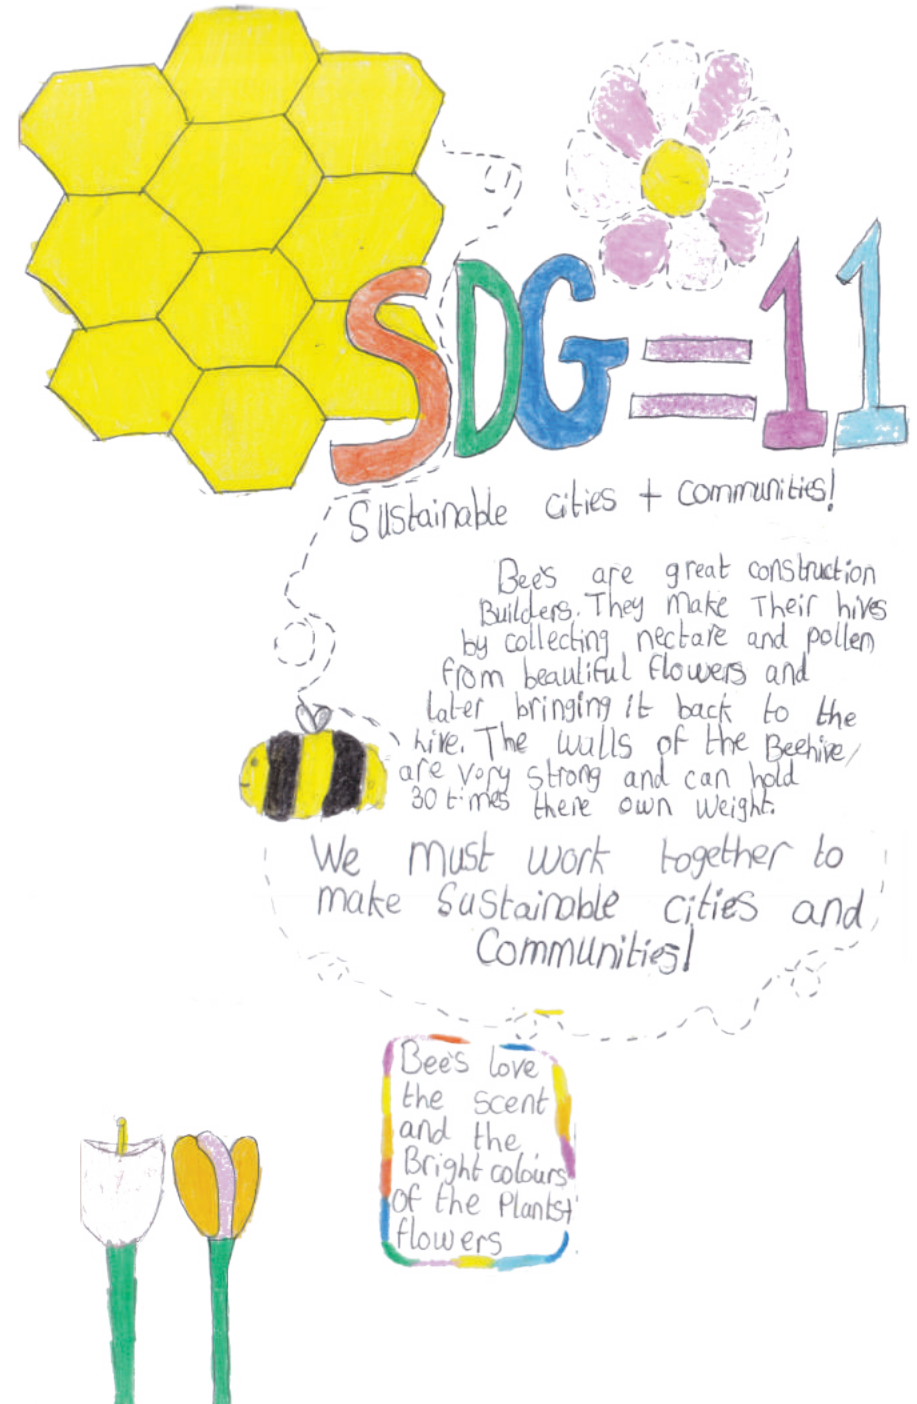 SDG=11
Sustainable cities + communities!
Bee's are great construction
Builders. They make Their hives
by collecting nectare and pollen
from beautiful flowers and
later bringing it back to the
hive. The walls of the Beehive
are very strong and can hold
30 times there own weight.
We must work together to
make Sustainable cities and
Communities!
Bee's love
the scent
and the
Bright colours
of the Plants+
flowers